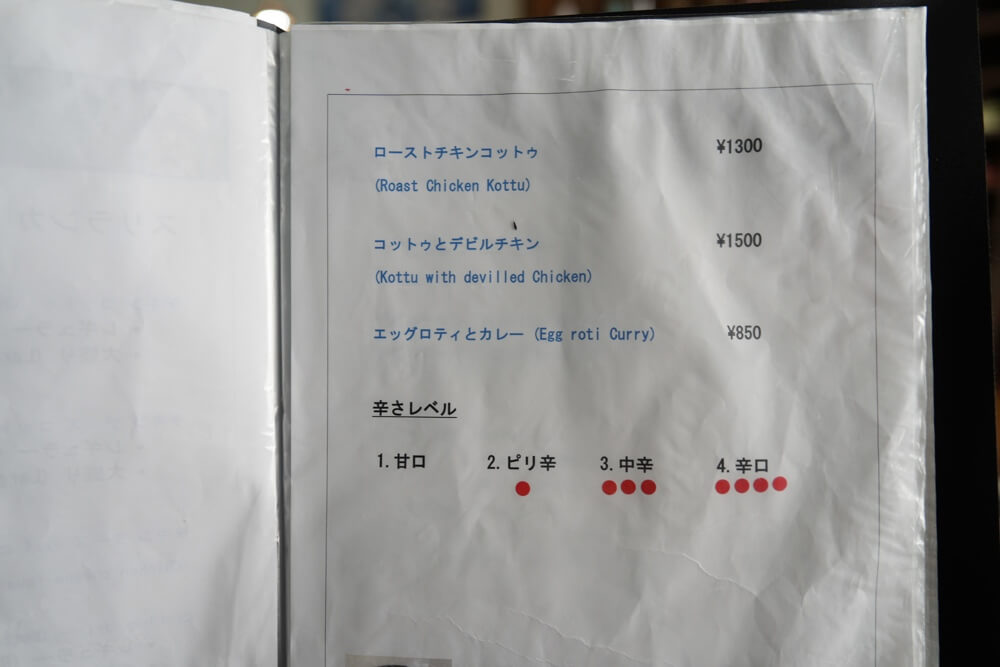 ローストチキンコットゥ ¥1300
(Roast Chicken Kottu)
コットゥとデビルチキン ¥1500
(Kottu with devilled Chicken)
エッグロティとカレー (Egg roti Curry) ¥850
辛さレベル
1. 甘口 2. ピリ辛 3. 中辛 4. 辛口